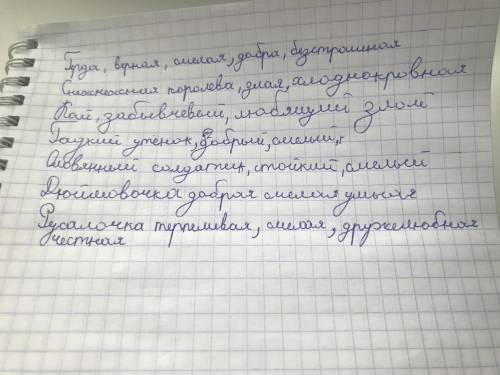 Герда, верная, смелая, добра, безстрашная
Снежная королева, злая, хлоднокровная
Кай, забывчевый, любящий злой
Гадкий утёнок, добрый, смелый,
Оловянный солдатик, стойкий, смелый
Дюймовочка добрая смелая умная
Русалочка терпеливая, смелая, дружелюбная
честная